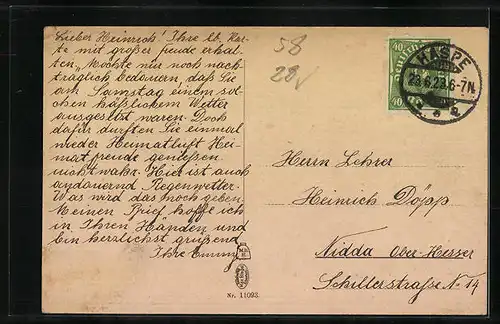 Lieber Heinrich! Ihre lb. Kar-
te mit großer freude erhal-
ten. Möchte nur noch nach-
träglich bedauern, daß Sie
am Samstag einem sol-
chen häßlichem Wetter
ausgesetzt waren. Doch
dafür durften Sie einmal
wieder Heimatluft Hei-
matfreude genießen
nicht wahr. Hier ist auch
andauernd Regenwetter.
Was wird das noch geben.
Meinen Brief hoffe ich
in Ihren Händen und
bin herzlichst grüßend
Ihre Emmy
Nr. 11093.
58
28
40 40
HASPE
23.6.23.6-7N.
40
Herrn Lehrer
Heinrich Döpp
Nidda Ober-Hessen
Schillerstraße No 14